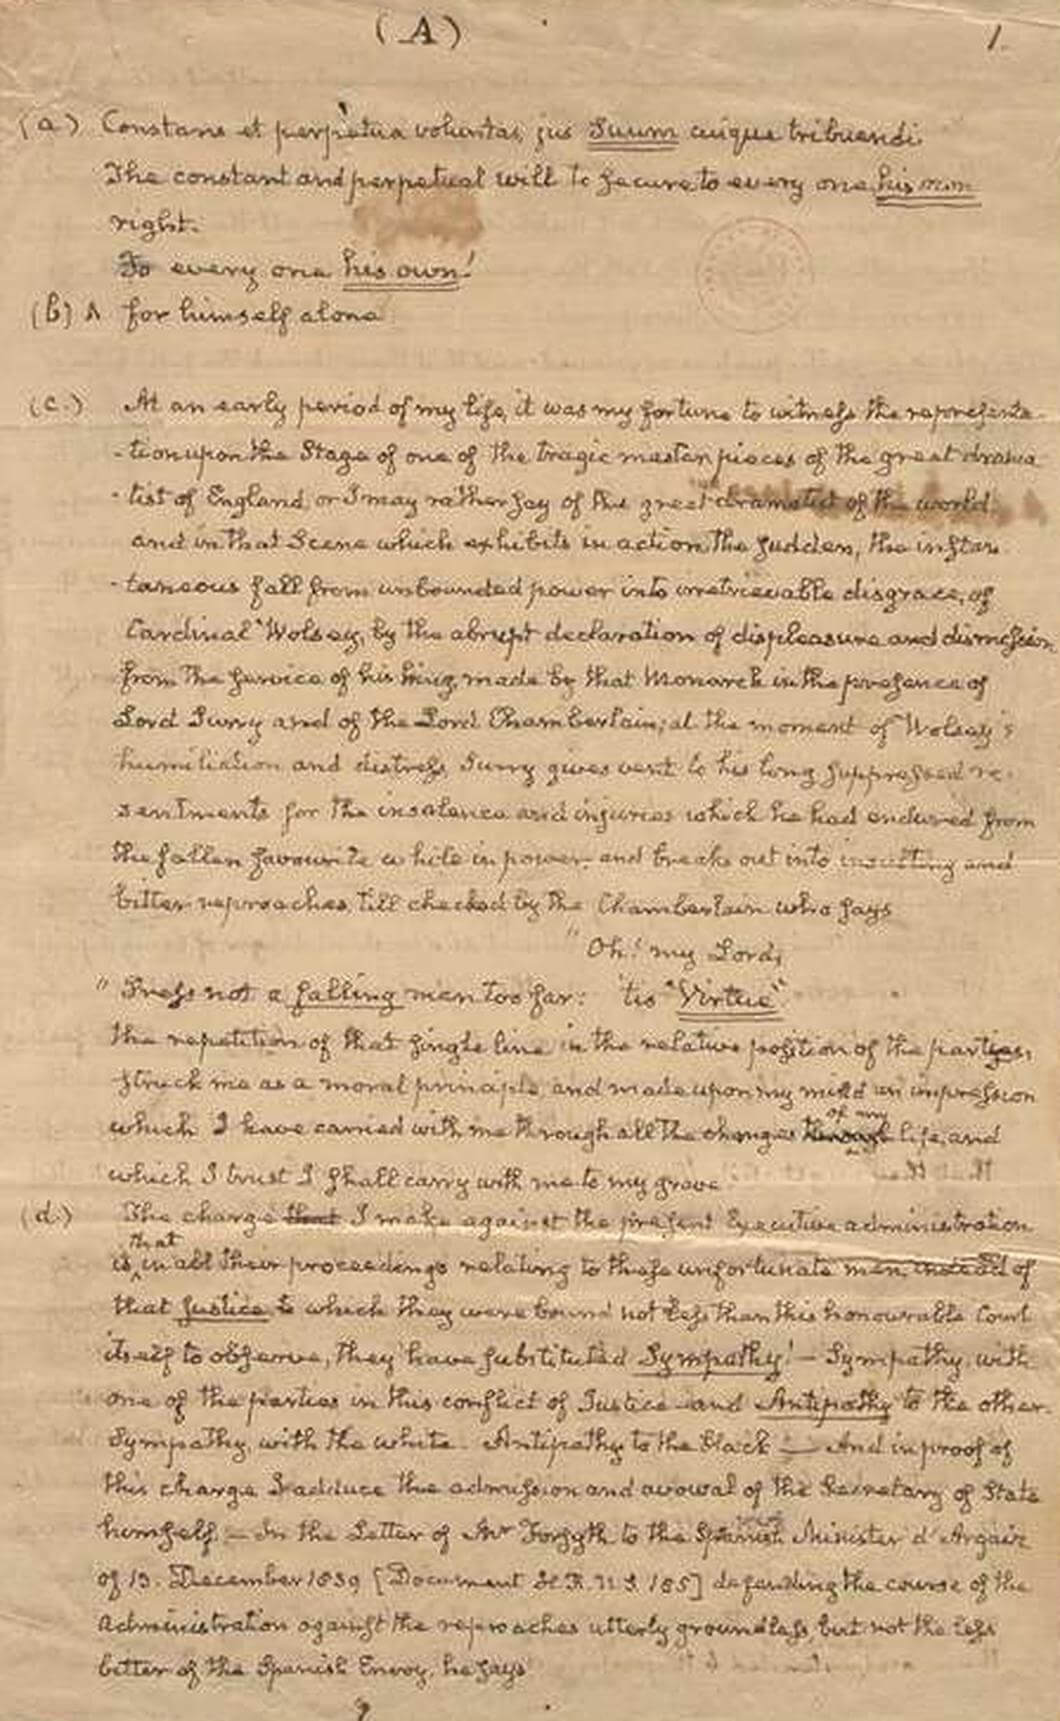 (A)
1.
(a) Constans et perpetua voluntas, jus Suum cuique tribuendi.
The constant and perpetual will to secure to every one his own
right.
To every one his own!
(b) A for himself alone
(c.) At an early period of my life, it was my fortune to witness the representa-
-tion upon the Stage of one of the tragic master pieces of the great drama
-tist of England, or I may rather say of the great dramatist of the world,
and in that Scene which exhibits in action the sudden, the instan
-taneous fall from unbounded power into irretrievable disgrace, of
Cardinal Wolsey, by the abrupt declaration of displeasure and dismission
from the service of his King, made by that Monarch in the presence of
Lord Surry and of the Lord Chamberlain; at the moment of Wolsey's
humiliation and distress, Surry gives vent to his long suppressed re-
sentments for the insolence and injuries which he had endured from
the fallen favourite while in power, and breaks out into insulting and
bitter reproaches, till checked by the Chamberlain who says
"Oh! my Lord;
"Press not a falling man too far: 'tis "Virtue"
the repetition of that single line in the relative position of the parties,
struck me as a moral principle, and made upon my mind an impression
of my
which I have carried with me through all the changes life, and
which I trust I shall carry with me to my grave.
(d.) The charge that I make against the present Executive administration
that
is, in all their proceedings relating to these unfortunate men, instead of
that Justice to which they were bound not less than this honourable Court
itself to observe, they have substituted Sympathy! — Sympathy with
one of the parties in this conflict of Justice and Antipathy to the other.
Sympathy, with the white. Antipathy to the black — And in proof of
this charge I adduce the admission and avowal of the Secretary of State
himself. — In the Letter of Mr Forsyth to the Spanish Minister d'Argaiz
of 13. December 1839 [Document H.R. N.S. 185] defending the course of the
Administration against the reproaches utterly groundless, but not the less
bitter of the Spanish Envoy, he says